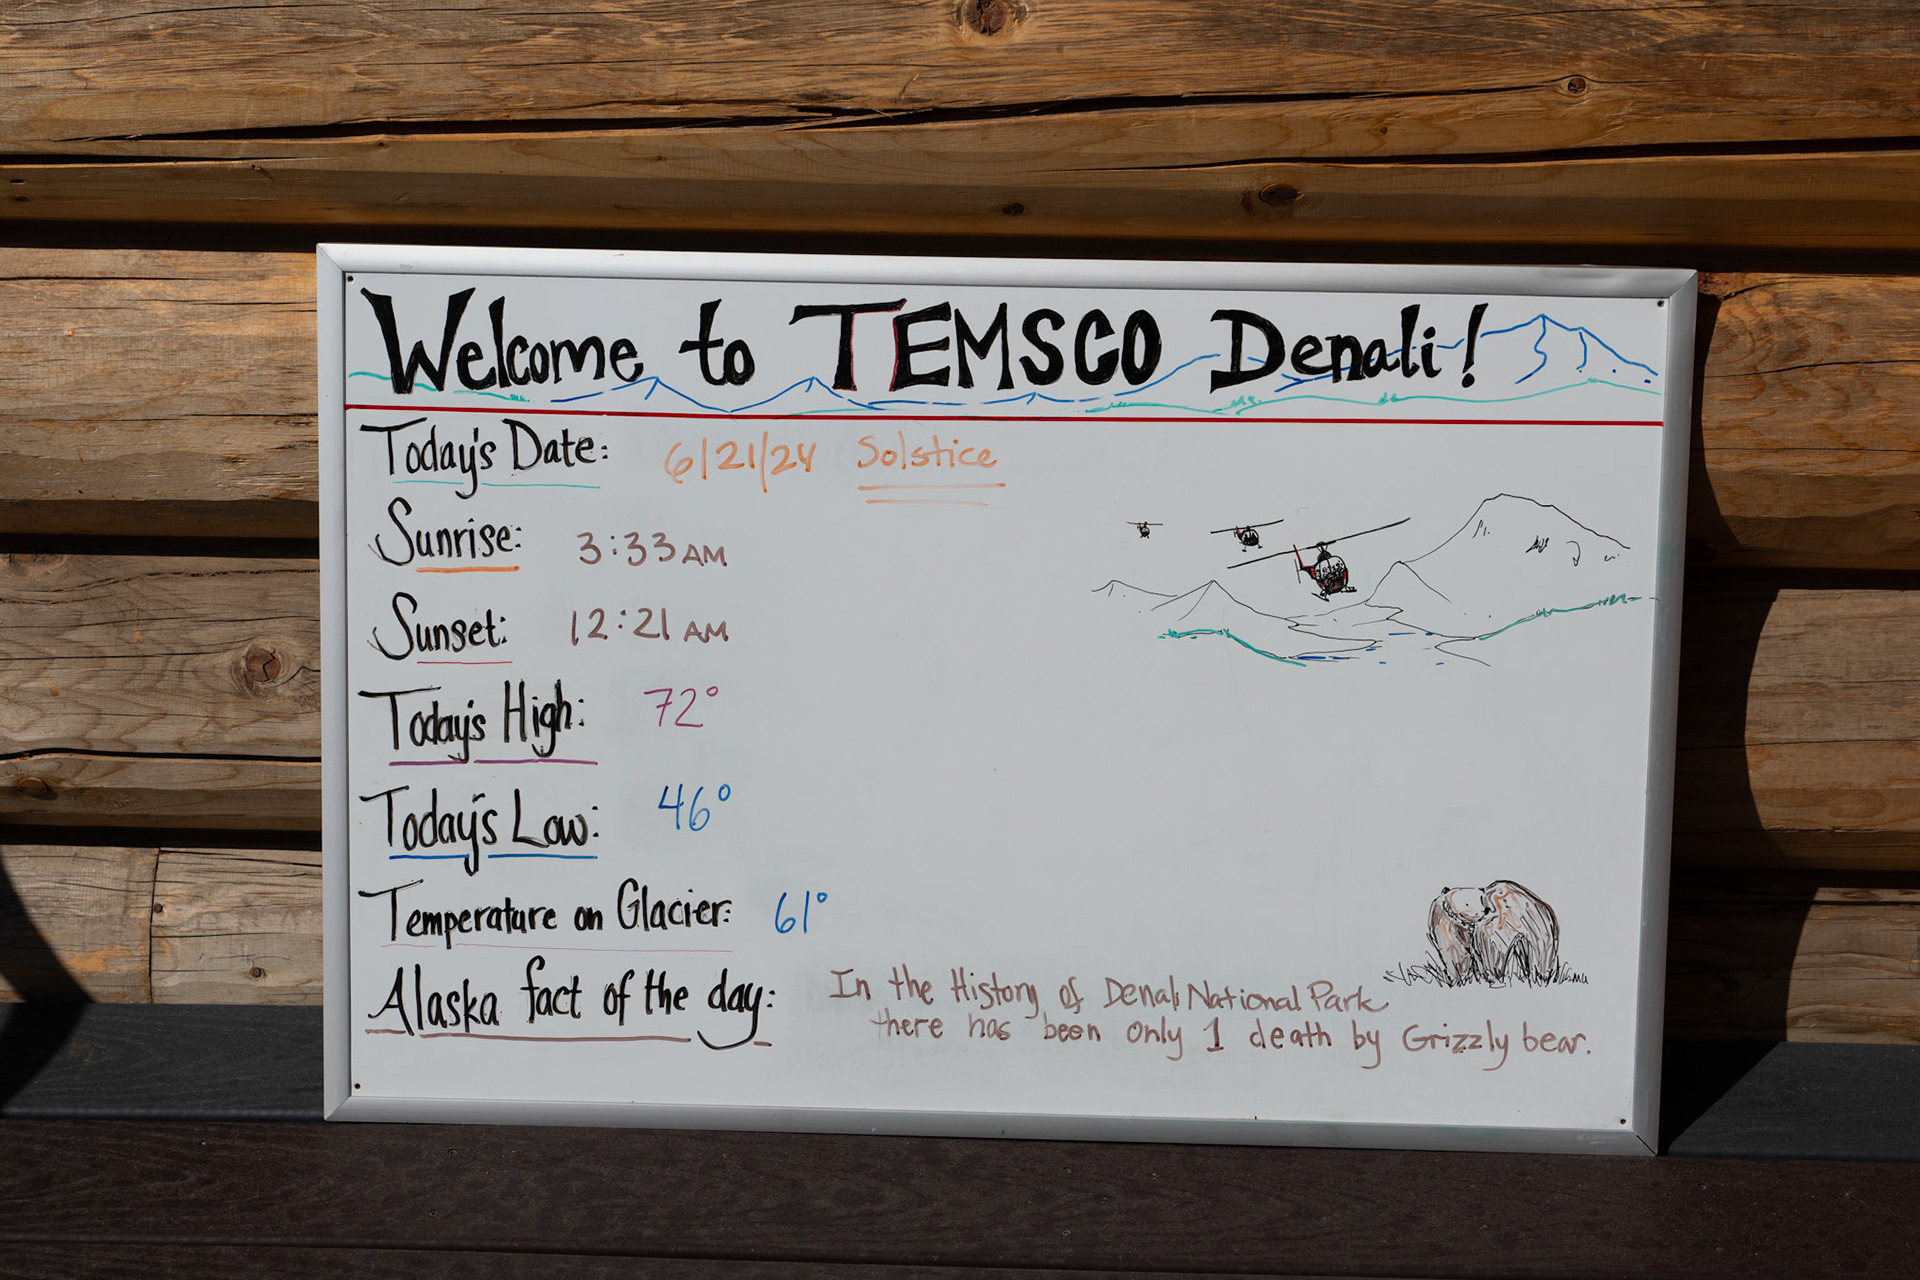 Welcome to TEMSCO Denali!
Today's Date: 6/21/24 Solstice
Sunrise: 3:33 AM
Sunset: 12:21 AM
Today's High: 72°
Today's Low: 46°
Temperature on Glacier: 61°
Alaska fact of the day: In the History of Denali National Park
there has been only 1 death by Grizzly bear.